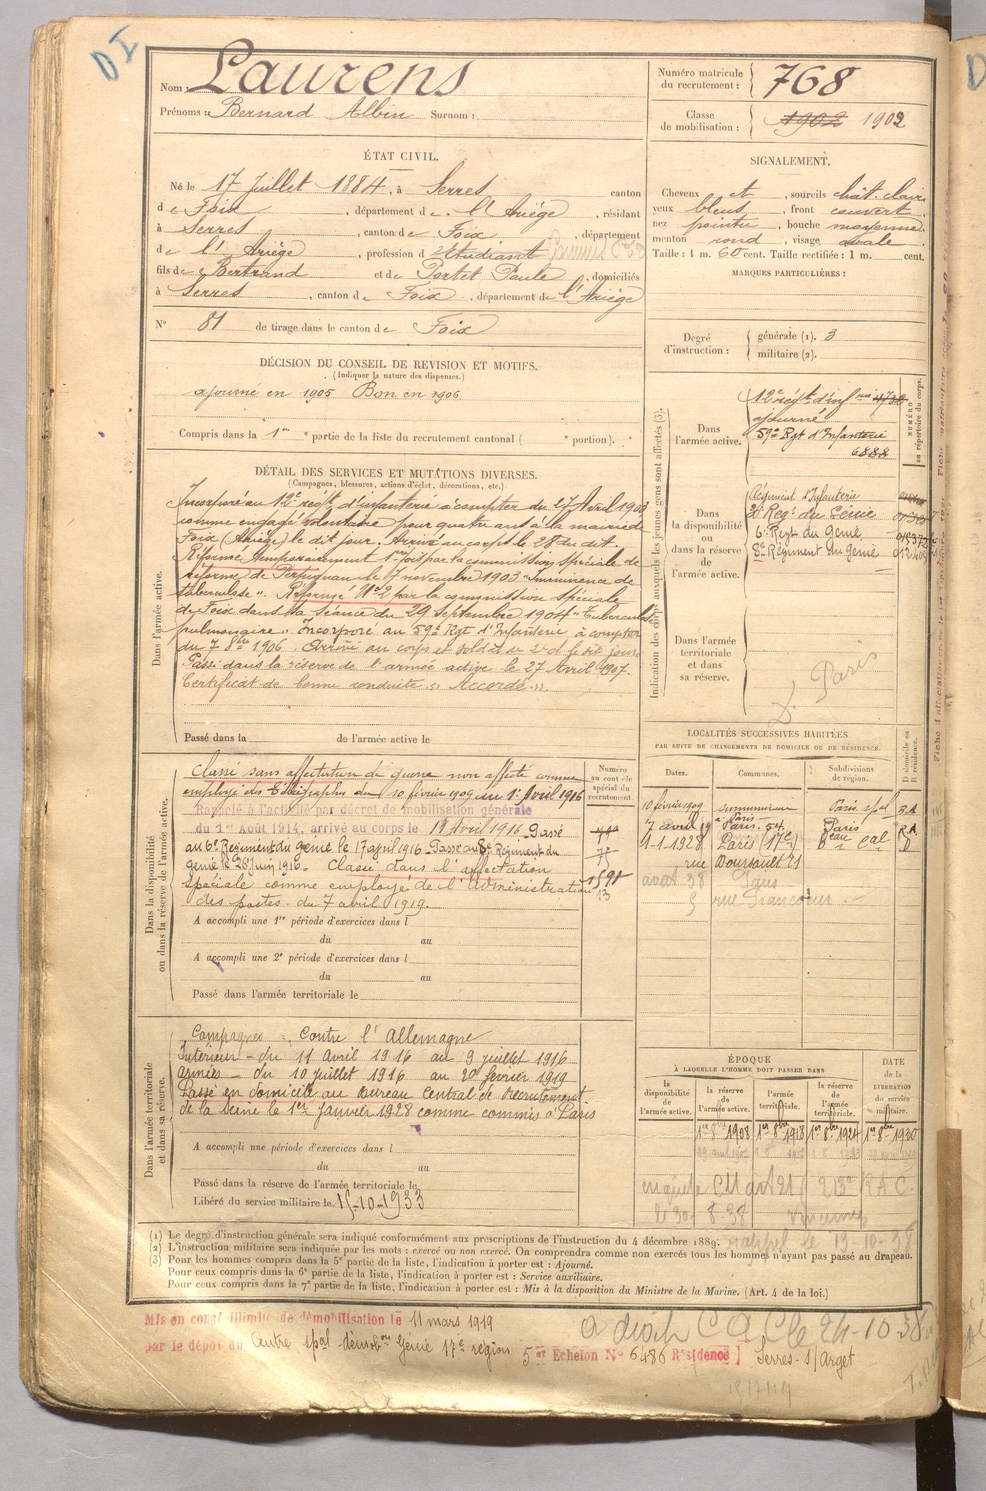 D I
Nom : Laurens
Prénoms : Bernard Albin Surnom :
Numéro matricule du recrutement : 768
Classe de mobilisation : 1902 1902
ÉTAT CIVIL.
Né le 17 Juillet 1884, à Serres canton
de Foix, département de l'Ariège, résidant
à Serres, canton de Foix, département
de l'Ariège, profession d'Etudiant
fils de Bertrand et de Portet Paule, domiciliés
à Serres, canton de Foix, département de l'Ariège
N° 81 de tirage dans le canton de Foix
SIGNALEMENT.
Cheveux et, sourcils chât. clair,
yeux bleus, front couvert,
nez pointu, bouche moyenne,
menton rond, visage ovale.
Taille : 1 m. 60 cent. Taille rectifiée : 1 m. cent.
MARQUES PARTICULIÈRES :
Degré d'instruction : générale (1). 3
militaire (2).
DÉCISION DU CONSEIL DE REVISION ET MOTIFS.
(Indiquer la nature des dispenses.)
ajourné en 1905 Bon en 1906
Compris dans la 1re partie de la liste du recrutement cantonal ( e portion).
DÉTAIL DES SERVICES ET MUTATIONS DIVERSES.
(Campagnes, blessures, actions d'éclat, décorations, etc.)
Dans l'armée active.
Incorporé au 12e régt d'infanterie à compter du 27 Avril 1903
comme engagé volontaire pour quatre ans à la mairie de
Foix (Ariège) le dit jour. Arrivé au corps le 28 du dit.
Réformé temporairement 1re fois par la commission spéciale de
réforme de Perpignan le 17 novembre 1903 "Imminence de
tuberculose". Réformé N°2 par la commission spéciale
de Foix dans la séance du 29 Septembre 1904 "Tuberculose
pulmonaire". Incorporé au 59e Rgt d'Infanterie à compter
du 7 8bre 1906. Arrivé au corps et soldat de 2e cl le dit jour.
Passé dans la réserve de l'armée active le 27 Avril 1907.
Certificat de bonne conduite "Accordé".
Passé dans la de l'armée active le
Indication des corps auxquels les jeunes gens sont affectés (3).
NUMÉRO au répertoire du corps.
Dans l'armée active.
12e régt d'inf
ajourné
59e Rgt d'Infanterie
6888
Dans la disponibilité ou dans la réserve de l'armée active.
Régiment d'Infanterie
2e Reg. du Génie
6e Regt du Génie
8e Régiment du Génie
Dans l'armée territoriale et dans sa réserve.
Paris
Dans la disponibilité ou dans la réserve de l'armée active.
Numéro au contrôle spécial du recrutement.
Classé sans affectation de guerre non affecté comme
employé des Télégraphes du 10 février 1909 au 1er Avril 1916
Rappelé à l'activité par décret de mobilisation générale
du 1er Août 1914, arrivé au corps le 11 Avril 1916. Passé
au 6e Régiment du génie le 17 avril 1916. Passé au 8e Régiment du
génie le 26 Juin 1916. Classé dans l'affectation
spéciale comme employé de l'administration
des postes du 7 avril 1919.
A accompli une 1re période d'exercices dans l
du au
A accompli une 2e période d'exercices dans l
du au
Passé dans l'armée territoriale le
LOCALITÉS SUCCESSIVES HABITÉES
PAR SUITE DE CHANGEMENTS DE DOMICILE OU DE RÉSIDENCE.
Dates. Communes. Subdivisions de région. D domicile ou R résidence.
10 février 1909 surnuméraire à Paris Paris
7 avril 19 Paris. 54 Paris R A
1-1-1928 Paris 17e Beau Cal D
rue Boursault 71
avril 38 Paris
5 rue Francoeur
Dans l'armée territoriale et dans sa réserve.
Campagnes Contre l'Allemagne
Intérieur - du 11 Avril 1916 au 9 juillet 1916
Armées - du 10 juillet 1916 au 20 février 1919
Passé en domicile au Bureau Central de Recrutement
de la Seine le 1er Janvier 1928 comme commis à Paris
A accompli une période d'exercices dans l
du au
Passé dans la réserve de l'armée territoriale le
Libéré du service militaire le 15-10-1933
ÉPOQUE
À LAQUELLE L'HOMME DOIT PASSER DANS
la disponibilité de l'armée active. la réserve de l'armée active. l'armée territoriale. la réserve de l'armée territoriale. DATE de la LIBÉRATION du service militaire.
1er 8bre 1908 1er 8bre 1918 1er 8bre 1924 1er 8bre 1930
le 30-8-38 Vincennes
rappel le 13-10-38
(1) Le degré d'instruction générale sera indiqué conformément aux prescriptions de l'instruction du 4 décembre 1889.
(2) L'instruction militaire sera indiquée par les mots : exercé ou non exercé. On comprendra comme non exercés tous les hommes n'ayant pas passé au drapeau.
(3) Pour les hommes compris dans la 5e partie de la liste, l'indication à porter est : Ajourné.
Pour ceux compris dans la 6e partie de la liste, l'indication à porter est : Service auxiliaire.
Pour ceux compris dans la 7e partie de la liste, l'indication à porter est : Mis à la disposition du Ministre de la Marine. (Art. 4 de la loi.)
Mis en congé illimité de démobilisation le 11 mars 1919
par le dépôt du Centre spal démobon Génie 17e région 5e Echelon N° 6486 Résidence Serres-s/Arget
24-10-38